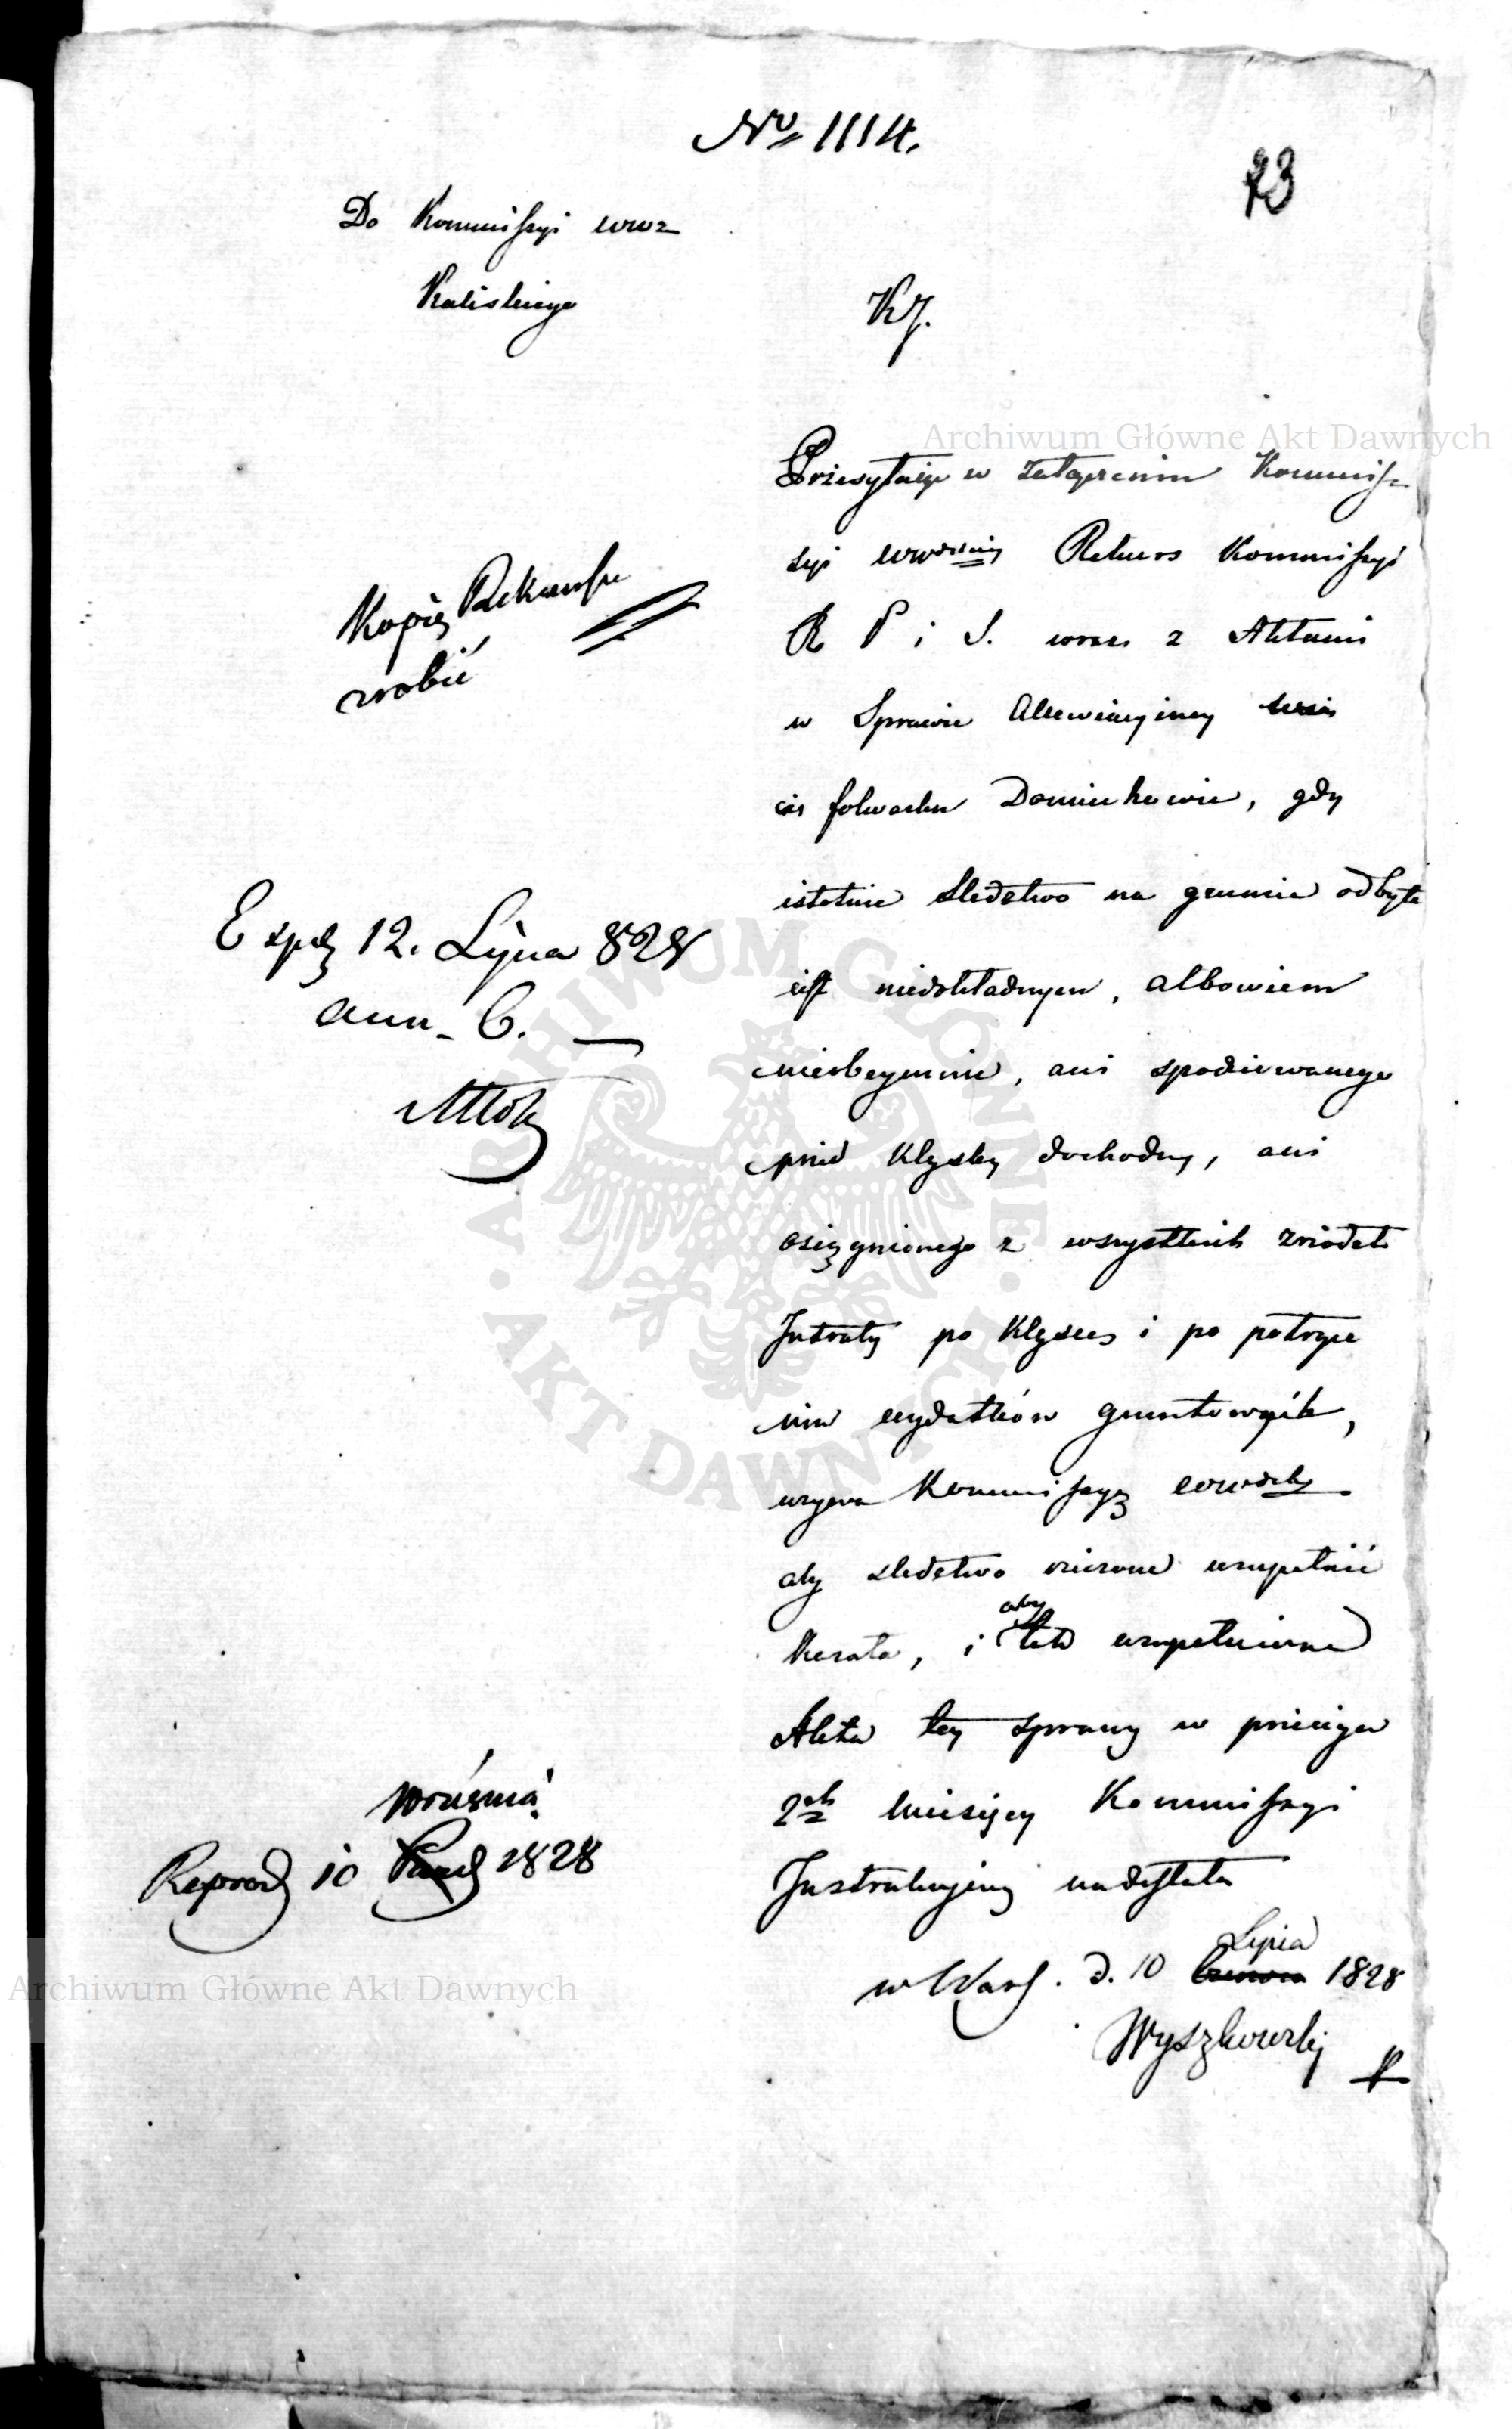 No 1114.
73
Do Kommissyi wwz
Kaliskiego
KJ.
Przesyłaiąc w załączeniu Kommis-
syi wwdzkiey Rekurs Kommissyi
R P i S. wraz z Aktami
w Sprawie Allewiacyiney
folwarku Domiechowic, gdy
istotnie śledztwo na gruncie odbyte
iest niedokładnym, albowiem
nieobeymuie, ani spodziewanego
przed klęską dochodu, ani
osiągnionego z wszystkich zrzódeł
Intraty po klęsce i po potrące
niu wydatków gruntowych,
wzywa Kommissyą wwdzką
aby śledztwo rzeczone uzupełnić
kazała, i aby tak uzupełnione
Akta tey sprawy w przeciągu
2ch miesięcy Kommissyi
Instrukcyiney nadesłała
w Warsz. d. 10 Czerwca Lipca 1828
Wyszkowski
Kopię Rekursu
zrobić
Exped 12. Lipca 828
ann. 6.
Reprod 10 Pazd Wrześnią 1828
Archiwum Główne Akt Dawnych
ARCHIWUM GŁÓWNE · AKT DAWNYCH ·
Archiwum Główne Akt Dawnych